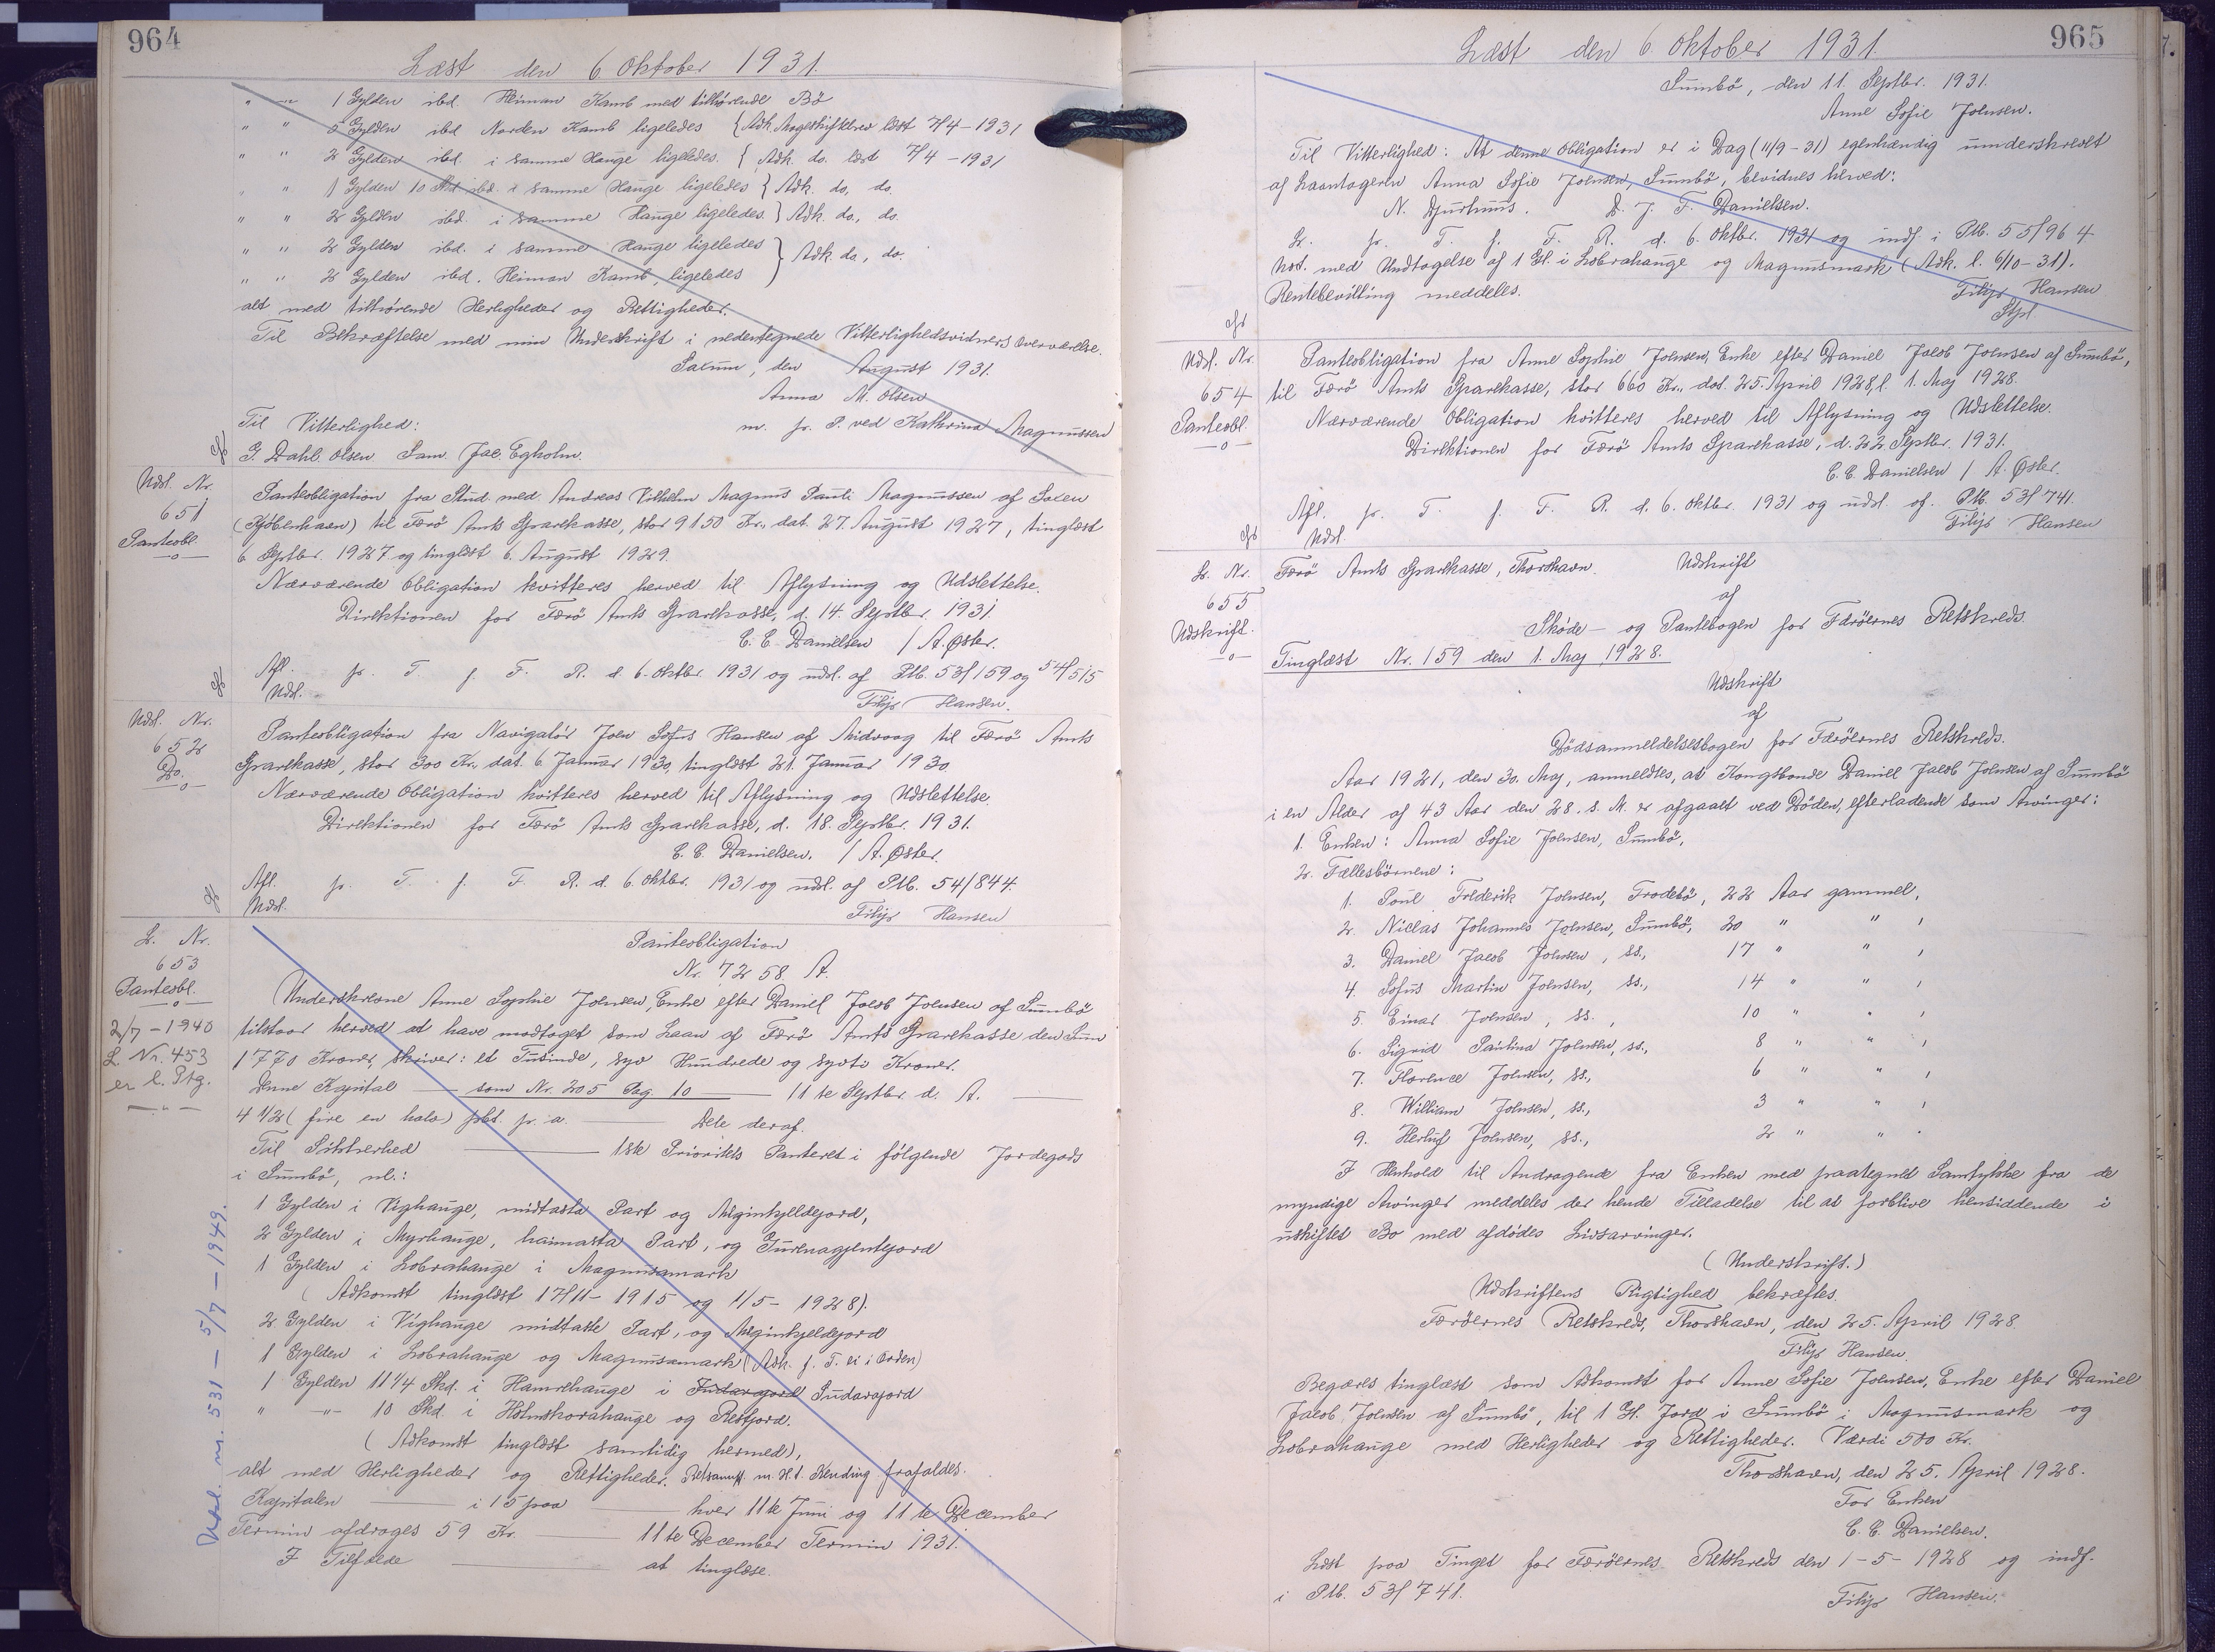 964
Læst den 6 Oktober 1931.
" " 1 Gylden ibd. Heiman Kamb med tilhørende Bø
" " 5 Gylden ibd Norden Kamb ligeledes { Adk. Mageskiftebrev læst 7/4-1931
" " 2 Gylden ibd. i samme Hauge ligeledes. { Adk. do. læst 7/4-1931
" " 1 Gylden 10 Skd ibd. i samme Hauge ligeledes } Adk. do, do.
" " 2 Gylden ibd. i samme Hauge ligeledes. } Adk. do, do.
" " 2 Gylden ibd. i samme Hauge ligeledes } Adk. do, do.
" " 2 Gylden ibd. Heiman Kamb, ligeledes
alt med tilhørende Herligheder og Rettigheder.
Til Bekræftelse med min Underskrift i nedentegnede Vitterlighedsvidners Overværelse.
den August 1931.
Anna M. Olsen
m. p. P. ved Kathrina Magnussen
Til Vitterlighed:
G. Dahl Olsen Sam. Jac. Egholm.
Udsl. Nr.
651
Panteobl.
Panteobligation fra Stud. med. Andreas Vilhelm Magnus Pauli Magnussen af
(København) til Færø Amts Sparekasse, stor 9150 Kr., dat. 27. August 1927, tinglæst
6 Septbr. 1927 og tinglæst 6. August 1929.
Nærværende Obligation kvitteres herved til Aflysning og Udslettelse.
Direktionen for Færø Amts Sparekasse, d. 14. Septbr. 1931.
C. C. Danielsen / A. Øster.
Afl. p. T. f. F. R. d. 6. Oktbr. 1931 og udsl. af Ptb. 53/159 og 54/515
Udsl.
Filip Hansen.
Udsl. Nr.
652
Do.
Panteobligation fra Navigatør Joen Sofus Hansen af Midvaag til Færø Amts
Sparekasse, stor 300 Kr., dat. 6 Januar 1930, tinglæst 21. Januar 1930.
Nærværende Obligation kvitteres herved til Aflysning og Udslettelse.
Direktionen for Færø Amts Sparekasse, d. 18. Septbr. 1931.
C. C. Danielsen. / A. Øster.
Afl. p. T. f. F. R. d. 6. Oktbr. 1931 og udsl. af Ptb. 54/844.
Udsl.
Filip Hansen
L. Nr.
653
Panteobl.
2/7-1940
L. Nr. 453
er l. Ptg.
Udsl. nr. 531 - 5/7 - 1949.
Panteobligation
Nr. 7258 A.
Underskrevne Anne Sophie Joensen, Enke efter Daniel Jacob Joensen af Sumbø
tilstaar herved at have modtaget som Laan af Færø Amts Sparekasse den Sum
1770 Kroner, skriver: et Tusinde, syv Hundrede og syvti Kroner.
Denne Kapital som Nr. 205 Pag. 10 11te Septbr. d. A.
4 1/2 (fire en halv) pCt. p. a. Dele deraf.
Til Sikkerhed 1ste Prioritets Panteret i følgende Jordegods
i Sumbø, nl.:
1 Gylden i Vighauge, midtasta Part og Miginkjeldejord,
2 Gylden i Myrhauge, haimasta Part, og Gurenagjentejord
1 Gylden i Lobrahauge i Magnusamark
(Adkomst tinglæst 17/11-1915 og 1/5-1928).
2 Gylden i Vighauge midtaste Part, og Miginkjeldejord
1 Gylden i Lobrahauge og Magnusamark (Adk. f. T. ei i Orden)
1 Gylden 11 1/4 Skd. i Hamrehauge i Sudarajord
" " 10 Skd. i Holmskorahauge og Restjord.
(Adkomst tinglæst samtidig hermed),
alt med Herligheder og Rettigheder. Retsanm. m. H. t. Kending frafaldes.
Kapitalen i 15 paa hver 11te Juni og 11te December
Termin afdrages 59 Kr. 11te December Termin 1931.
I Tilfælde at tinglæse.
965
Læst den 6. Oktober 1931.
Sumbø, den 11. Septbr. 1931.
Anne Sofie Joensen.
Til Vitterlighed: At denne Obligation er i Dag (11/9-31) egenhændig underskrevet
af Laantageren Anna Sofie Joensen, Sumbø, bevidnes herved:
N. Djurhuus. D. J. F. Danielsen.
L. p. T. f. F. R. d. 6. Oktbr. 1931 og indf. i Ptb. 55/964
Not. med Undtagelse af 1 Gl. i Lobrahauge og Magnusmark (Adk. l. 6/10-31).
Rentebevilling meddeles.
Filip Hansen
Stpl.
Udsl. Nr.
654
Panteobl.
Panteobligation fra Anne Sophie Joensen, Enke efter Daniel Jacob Joensen af Sumbø,
til Færø Amts Sparekasse, stor 660 Kr., dat. 25. April 1928, l. 1. Maj 1928.
Nærværende Obligation kvitteres herved til Aflysning og Udslettelse.
Direktionen for Færø Amts Sparekasse, d. 22. Septbr. 1931.
C. C. Danielsen / A. Øster.
Afl. p. T. f. F. R. d. 6. Oktbr. 1931 og udsl. af Ptb. 53/741.
Udsl.
Filip Hansen
L. Nr.
655
Udskrift.
Færø Amts Sparekasse, Thorshavn. Udskrift
af
Skøde- og Pantebogen for Færøernes Retskreds.
Tinglæst Nr. 159 den 1. Maj 1928.
Udskrift
af
Dødsanmeldelsesbogen for Færøernes Retskreds.
Aar 1921, den 30. Maj, anmeldtes, at Kongsbonde Daniel Jacob Joensen af Sumbø
i en Alder af 43 Aar den 28. s. M. er afgaaet ved Døden, efterladende som Arvinger:
1. Enken: Anna Sofie Joensen, Sumbø,
2. Fællesbørnene:
1. Poul Frederik Joensen, Frodebø, 22 Aar gammel,
2. Niclas Johannes Joensen, Sumbø, 20 " " ,
3. Daniel Jacob Joensen, ss., 17 " " ,
4. Sofus Martin Joensen, ss., 14 " " ,
5. Einar Joensen, ss., 10 " " ,
6. Sigrid Paulina Joensen, ss., 8 " " ,
7. Florence Joensen, ss., 6 " " ,
8. William Joensen, ss., 3 " " ,
9. Herluf Joensen, ss., 2 " " .
I Henhold til Andragende fra Enken med paategnet Samtykke fra de
myndige Arvinger meddeles der hende Tilladelse til at forblive hensiddende i
uskiftet Bo med afdødes Livsarvinger.
(Underskrift.)
Udskriftens Rigtighed bekræftes.
Færøernes Retskreds, Thorshavn, den 25. April 1928.
Filip Hansen.
Begæres tinglæst som Adkomst for Anne Sofie Joensen, Enke efter Daniel
Jacob Joensen af Sumbø, til 1 Gl. Jord i Sumbø i Magnusmark og
Lobrahauge med Herligheder og Rettigheder. Værdi 500 Kr.
Thorshavn, den 25. April 1928.
For Enken
C. C. Danielsen.
Læst paa Tinget for Færøernes Retskreds den 1-5-1928 og indf.
i Ptb. 53/741.
Filip Hansen.